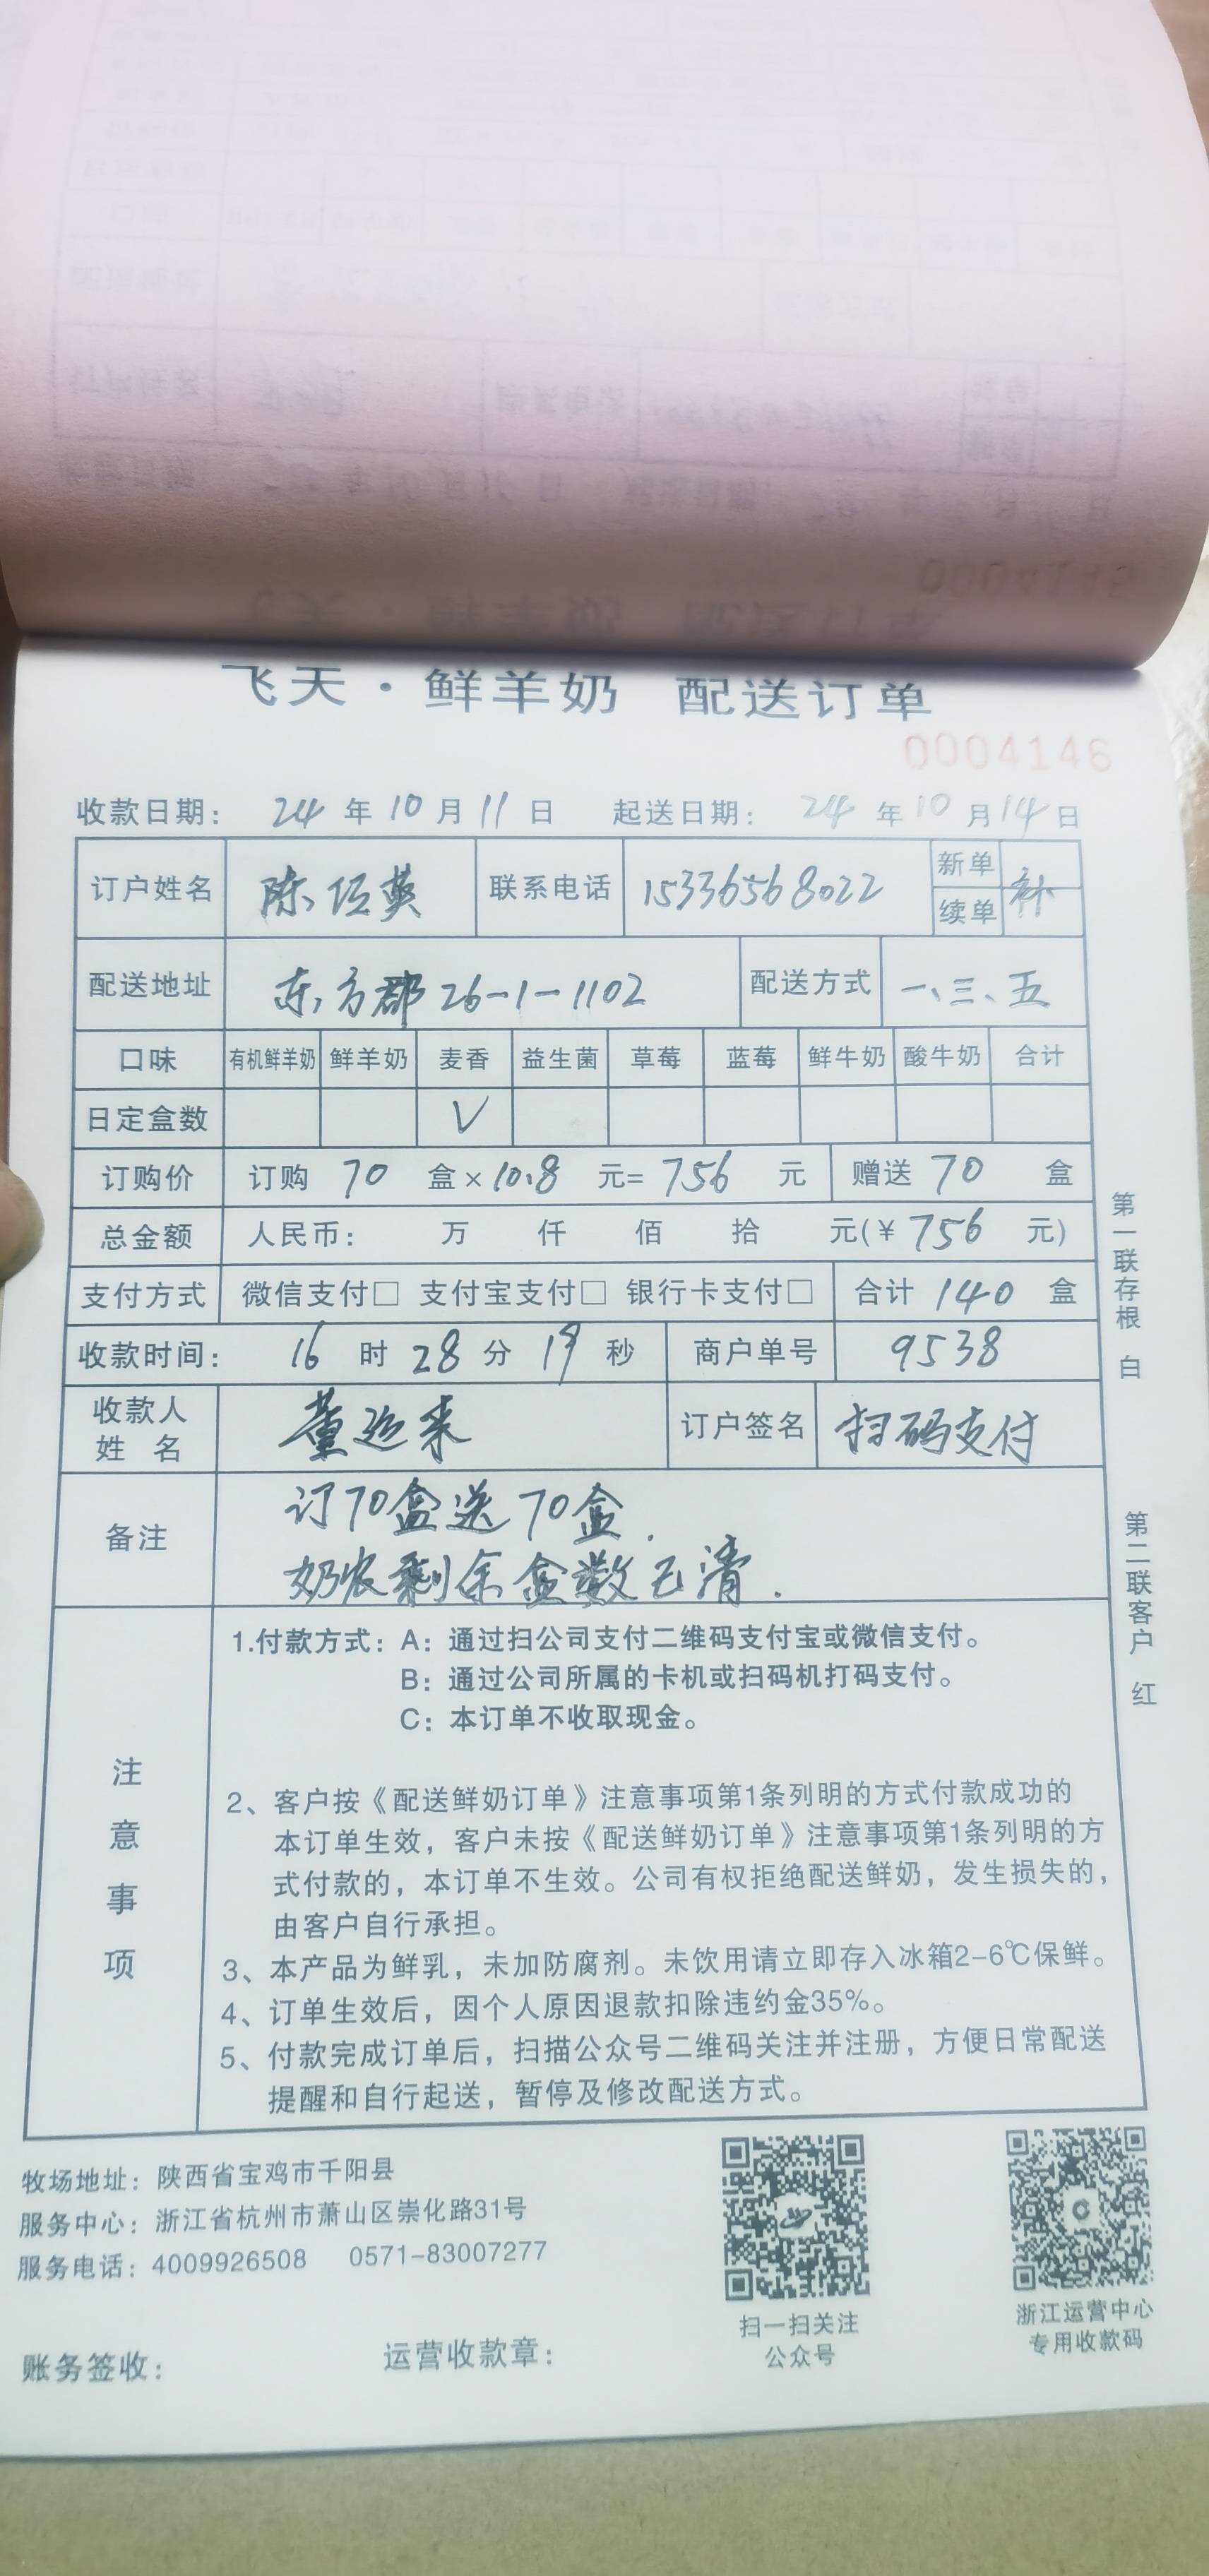 飞天·鲜羊奶 配送订单
0004146
收款日期: 24 年 10 月 11 日 起送日期: 24 年 10 月 14 日
订户姓名 陈 英 联系电话 15336568022 新单 续单 补
配送地址 东方郡 26-1-1102 配送方式 一、三、五
口味 有机鲜羊奶 鲜羊奶 麦香 益生菌 草莓 蓝莓 鲜牛奶 酸牛奶 合计
日定盒数 V
订购价 订购 70 盒×10.8 元=756 元 赠送 70 盒
总金额 人民币: 万 仟 佰 拾 元(¥756 元)
支付方式 微信支付□ 支付宝支付□ 银行卡支付□ 合计 140 盒
收款时间: 16 时 28 分 19 秒 商户单号 9538
收款人姓名 董 来 订户签名 扫码支付
备注 订70盒送70盒.
奶农剩余盒数已清.
注意事项
1.付款方式:A:通过扫公司支付二维码支付宝或微信支付。
B:通过公司所属的卡机或扫码机打码支付。
C:本订单不收取现金。
2、客户按《配送鲜奶订单》注意事项第1条列明的方式付款成功的
本订单生效,客户未按《配送鲜奶订单》注意事项第1条列明的方
式付款的,本订单不生效。公司有权拒绝配送鲜奶,发生损失的,
由客户自行承担。
3、本产品为鲜乳,未加防腐剂。未饮用请立即存入冰箱2-6℃保鲜。
4、订单生效后,因个人原因退款扣除违约金35%。
5、付款完成订单后,扫描公众号二维码关注并注册,方便日常配送
提醒和自行起送,暂停及修改配送方式。
第一联存根 白
第二联客户 红
牧场地址:陕西省宝鸡市千阳县
服务中心:浙江省杭州市萧山区崇化路31号
服务电话:4009926508 0571-83007277
扫一扫关注
公众号
浙江运营中心
专用收款码
账务签收: 运营收款章: